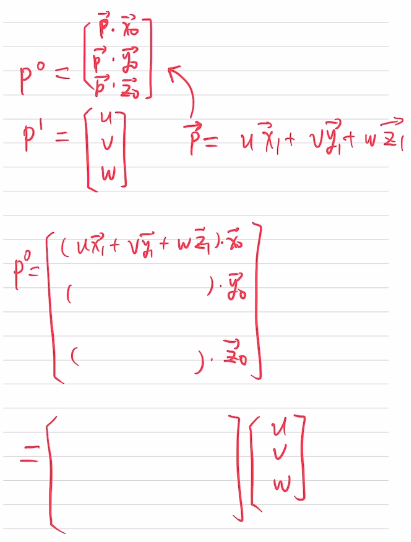 p⁰ = [ p⃗ · x⃗₀
p⃗ · y⃗₀
p⃗ · z⃗₀ ]
p¹ = [ u
v
w ]
p⃗ = u x⃗₁ + v y⃗₁ + w z⃗₁
p⁰ = [ ( u x⃗₁ + v y⃗₁ + w z⃗₁ ) · x⃗₀
( ) · y⃗₀
( ) · z⃗₀ ]
= [ ] [ u
v
w ]